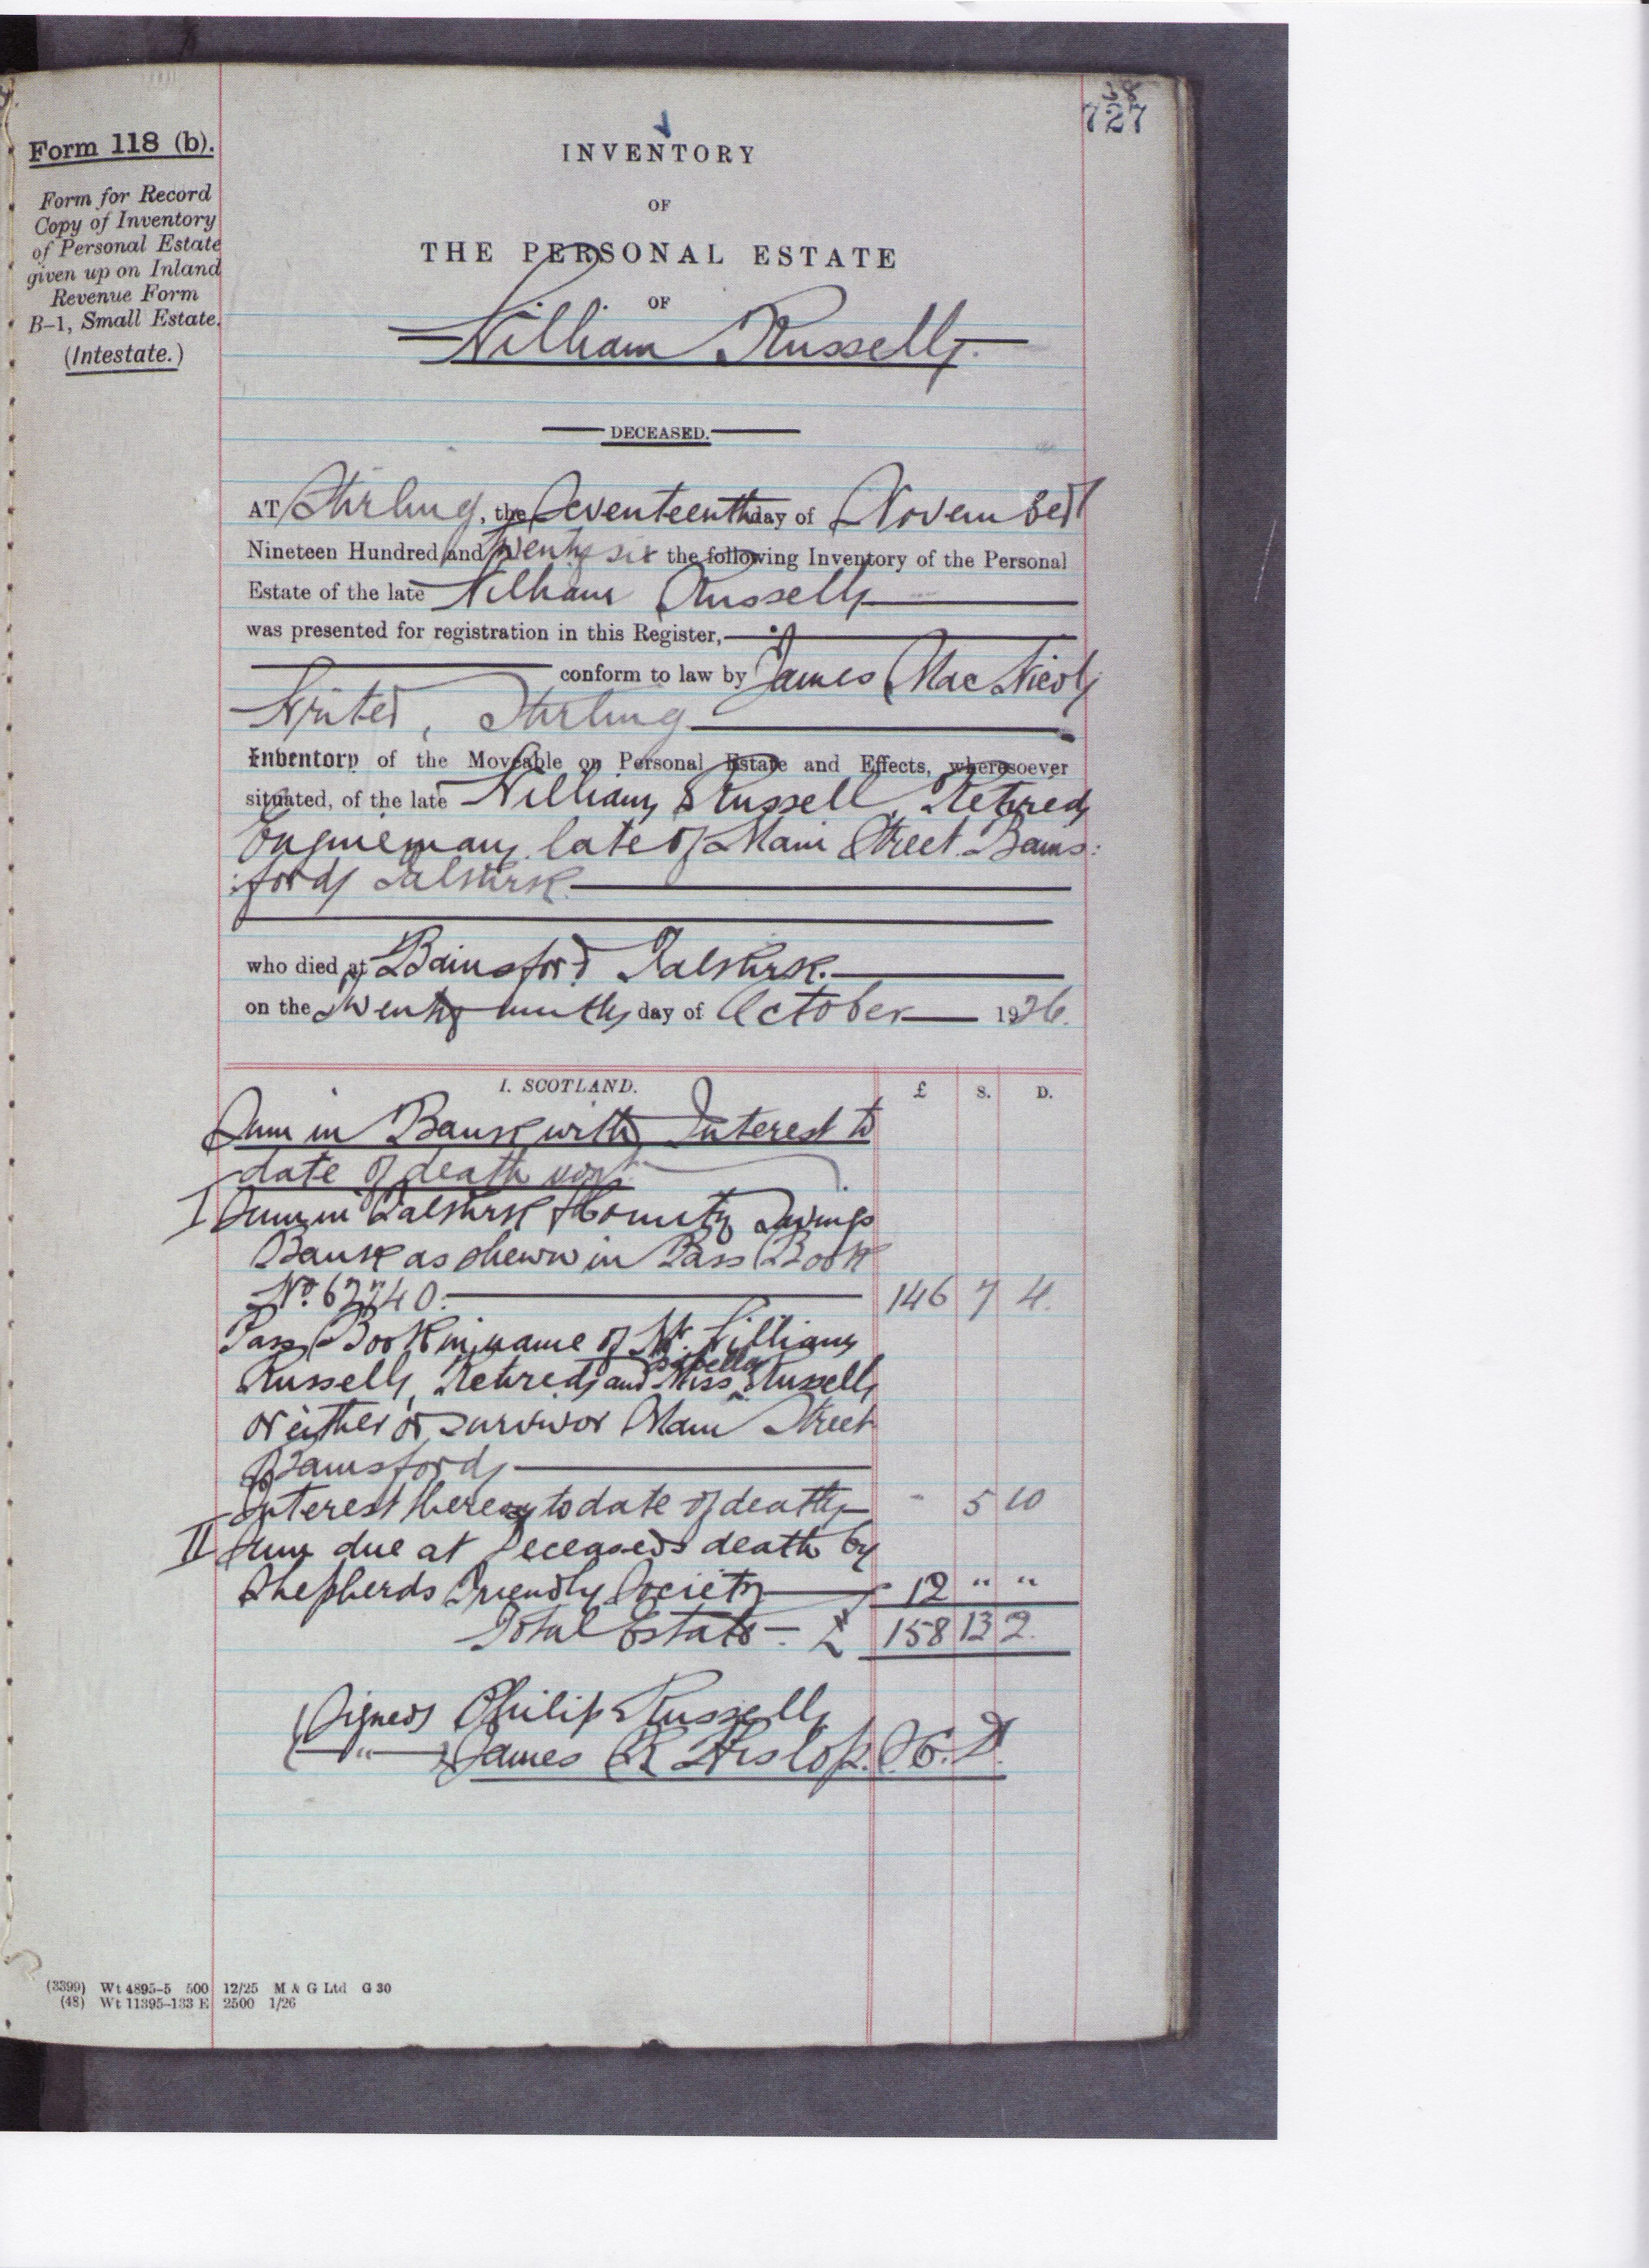 38
727
Form 118 (b).
Form for Record
Copy of Inventory
of Personal Estate
given up on Inland
Revenue Form
B-1, Small Estate.
(Intestate.)
INVENTORY
OF
THE PERSONAL ESTATE
OF
William Russell
DECEASED.
AT Stirling, the Seventeenth day of November
Nineteen Hundred and Twenty six the following Inventory of the Personal
Estate of the late William Russell
was presented for registration in this Register,
conform to law by James MacNicol
Writer, Stirling
Inventory of the Moveable or Personal Estate and Effects, wheresoever
situated, of the late William Russell, Retired
Engineman, late of Main Street Bains:
:ford Falkirk
who died at Bainsford Falkirk.
on the Twenty ninth day of October 1926.
I. SCOTLAND. £ S. D.
Sum in Bank with Interest to
date of death
I Sum in Falkirk & County Savings
Bank as shewn in Pass Book
No. 146 7 4.
Pass Book in name of Mr. William
Russell, Retired, and Miss Isabella Russell
or either or survivor Main Street
Bainsford
Interest hereon to date of death - 5 10
II Sum due at Deceased's death by
Shepherds Friendly Society 12 " "
Total Estate - £ 158 13 2.
(Signed) Philip Russell
( " ) James R Hislop.
(3399) Wt 4895-5 500 12/25 M & G Ltd G 30
(48) Wt 11395-133 E 2500 1/26